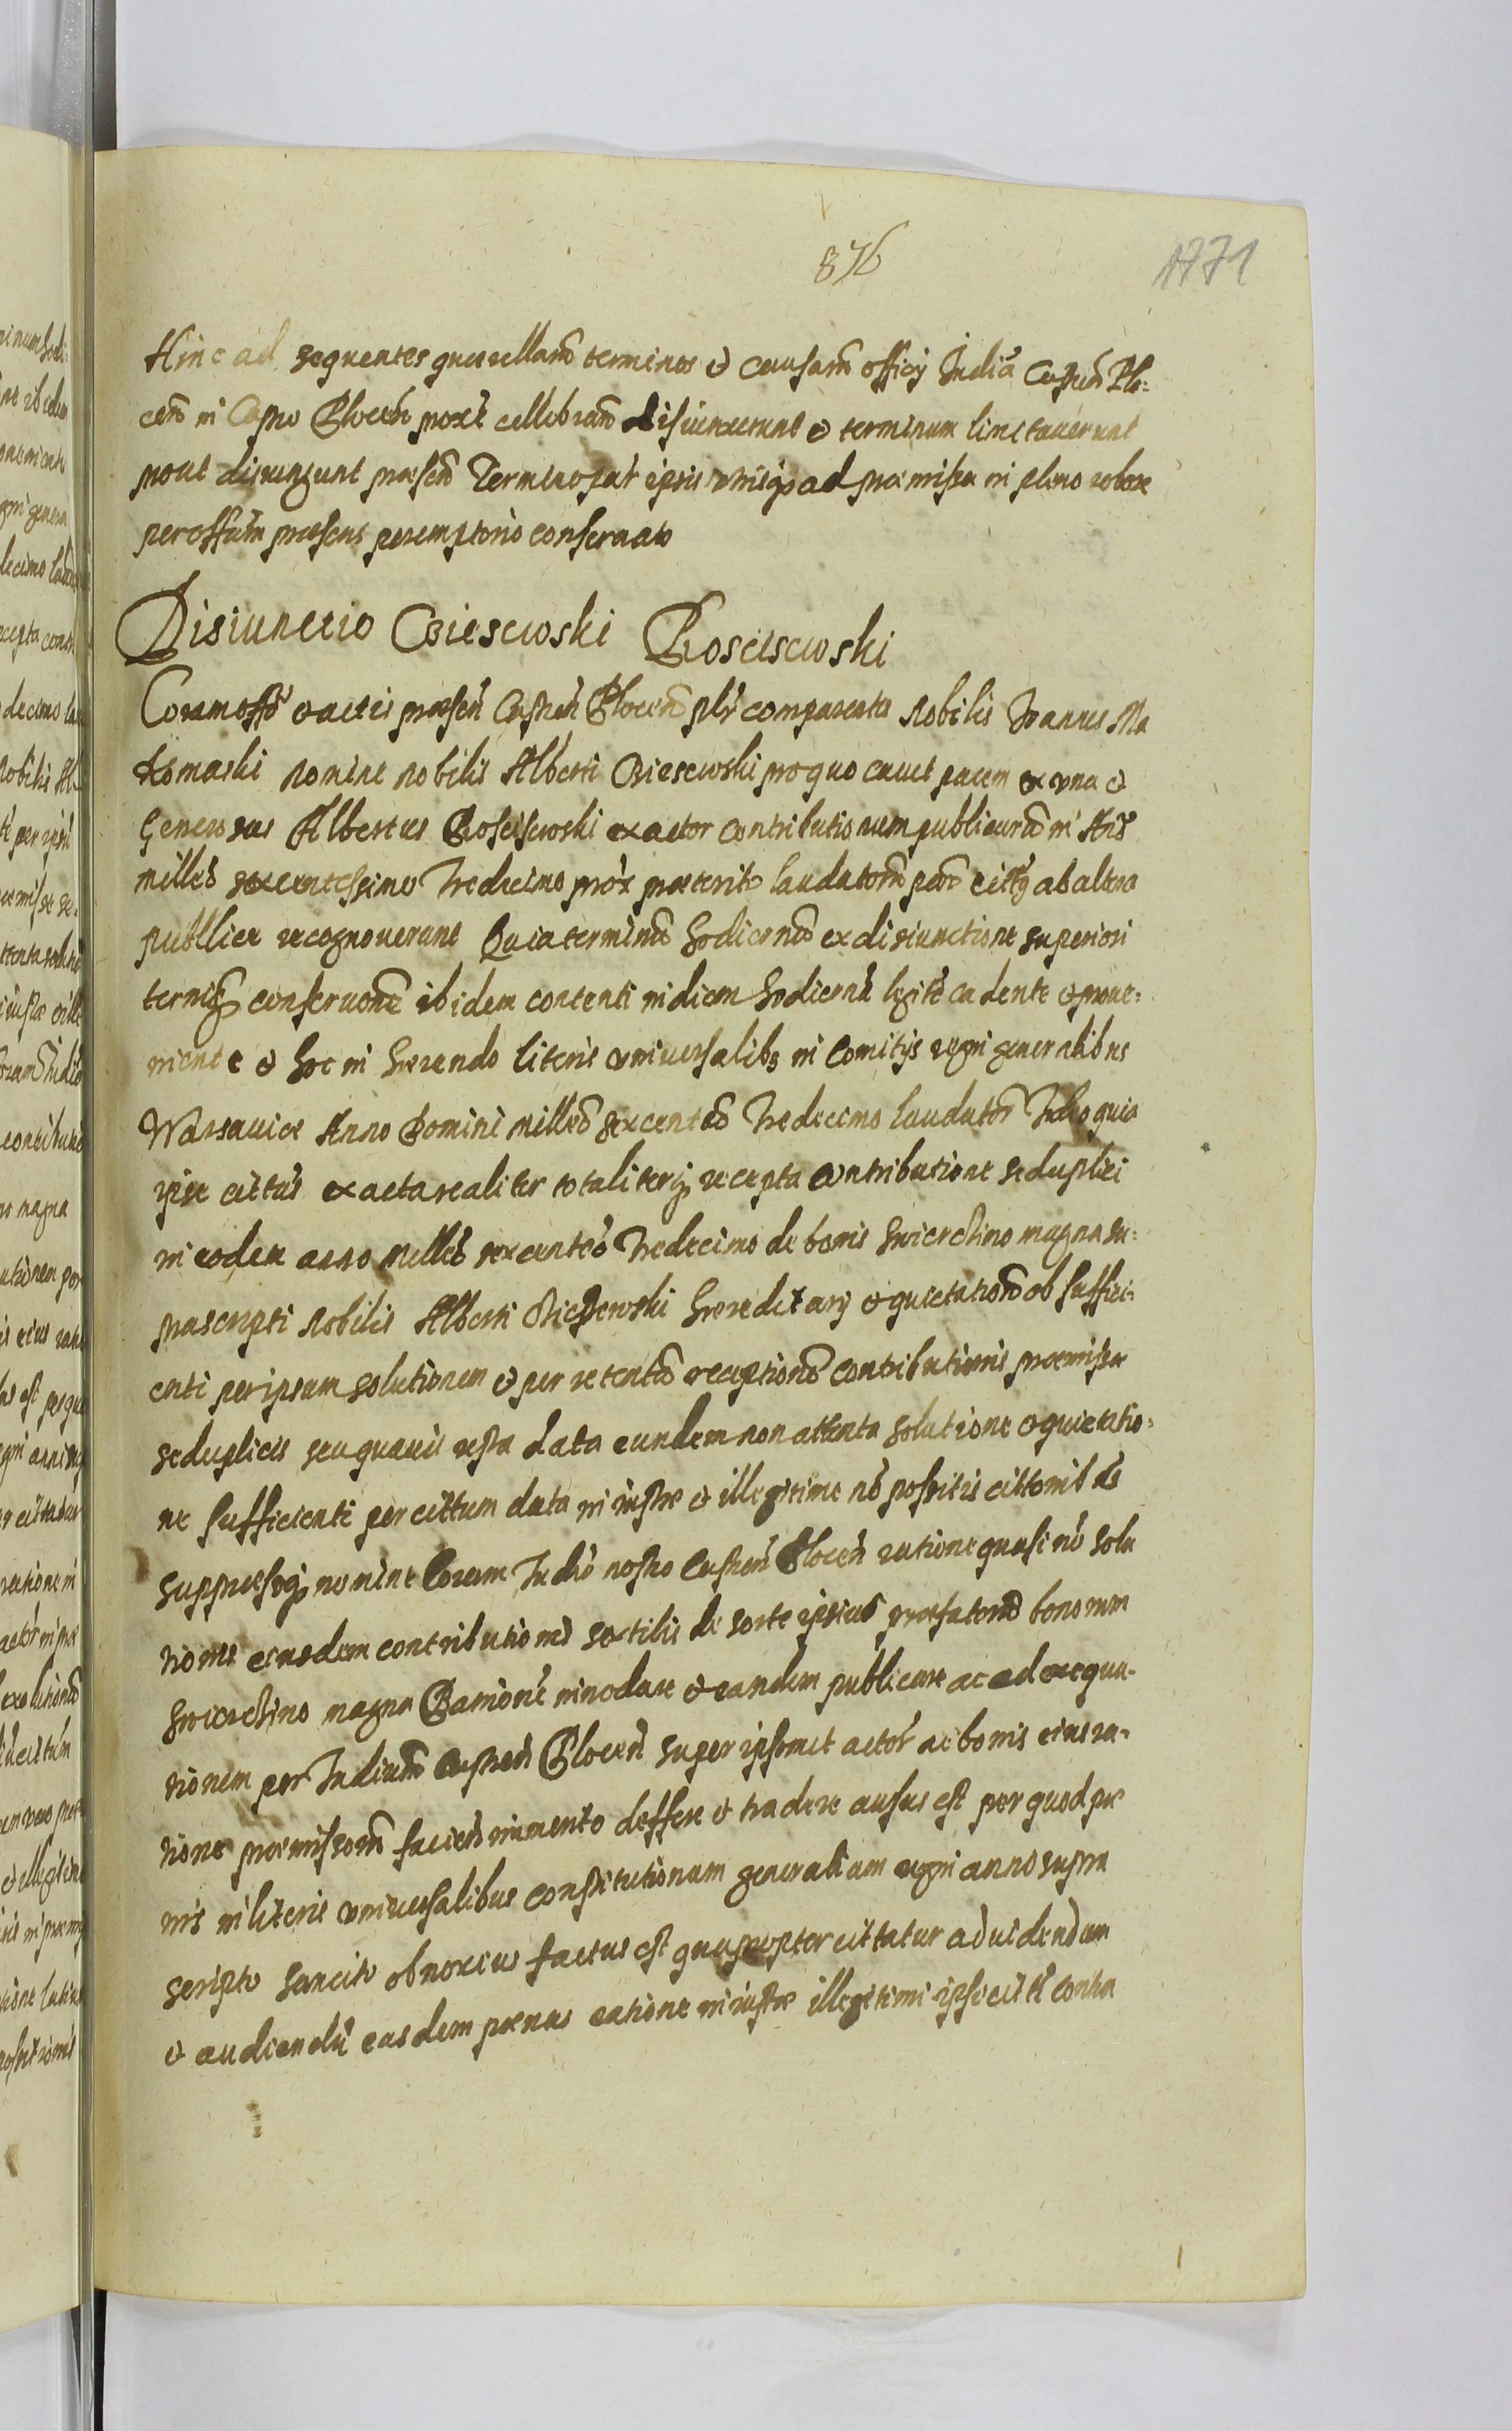 876
1771
Hinc ad sequentes querellarũ terminos et causarũ officÿ Iudiã Castreñ Plo=
ceñ in Castro Ploceñ proxe cellebrand disiunxerunt et terminum limitaverunt
prout disiungunt præseñ Termino partibus ipsis utrisq ad præmissa in pleno robore
per offitium præsens peremptorio conseruato
Disiunctio Biesewski Roscisewski
Coram offo et actis præseñ Castreñ Ploceñ plr comparentes Nobilis Joannes Ma
komaski nomine nobilis Alberti Biesewski pro quo cauet partem ex vna et
Generosus Albertus Roscisewski exactor contributionum publicarũ in Añis
milleõ sexcentessimo Tredecimo prox præterito laudatorũ parte citts ab altera
publlice recognouerunt Quia terminũ hodiernũ ex disiunctione superiori
terniq conseruone ibidem contenti in diem hodiernũ legitte cadente et proue=
niente et hoc in hærendo literis vniuersalibs in Comitÿs regni generalibus
Warsauiæ Anno Domini milleõ sexcenteõ Tredecimo laudator Ideo quia
ipse cittus exacta realiter totaliterq recepta contributione seduplici
in eodem anno milleõ sexcenteõ Tredecimo de bonis Swierchino magna su=
prascripti nobilis Alberti Biesewski hæreditarÿ et quietationẽ ob suffici=
enti per ipsum solutionem et per retentã receptionẽ contributionis præmissæ
seduplicis seu quauis restã data eundem non attenta solutione et quietatio=
ne sufficienti per cittum data iniuste et illegitime nõ possitis cittonibus
suppræsoq nomine Coram Iudio nostro Castreñ Ploceñ ratione quasi nõ solu
tionis eiusdem contributionis sextilis de sorte ipsius præfatorũ bonorum
Swierchino magna Banione innodare et eandem publicare ac ad exequu=
tionem per Iudicium Castreñ Ploceñ super ipsomet actore ac bonis eius ra=
tione præmissorũ facieñ iuramento deffere et tradere ausus est per quod pæ
nis in literis vniuersalibus constitutionum generalium regni anno supra
scripto sancito obnoxius factus est quapropter cittatur ad uidendum
et audiendũ easdem pænas ratione iniustæ illegitimi ipsi citti contra